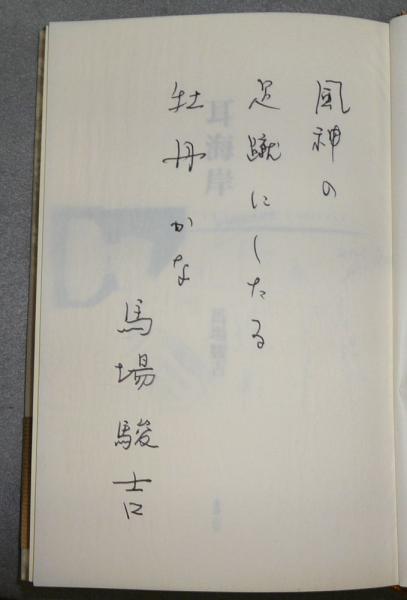 風神の
足蹴にしたる
牡丹かな
馬場駿吉
耳海岸
馬場駿吉